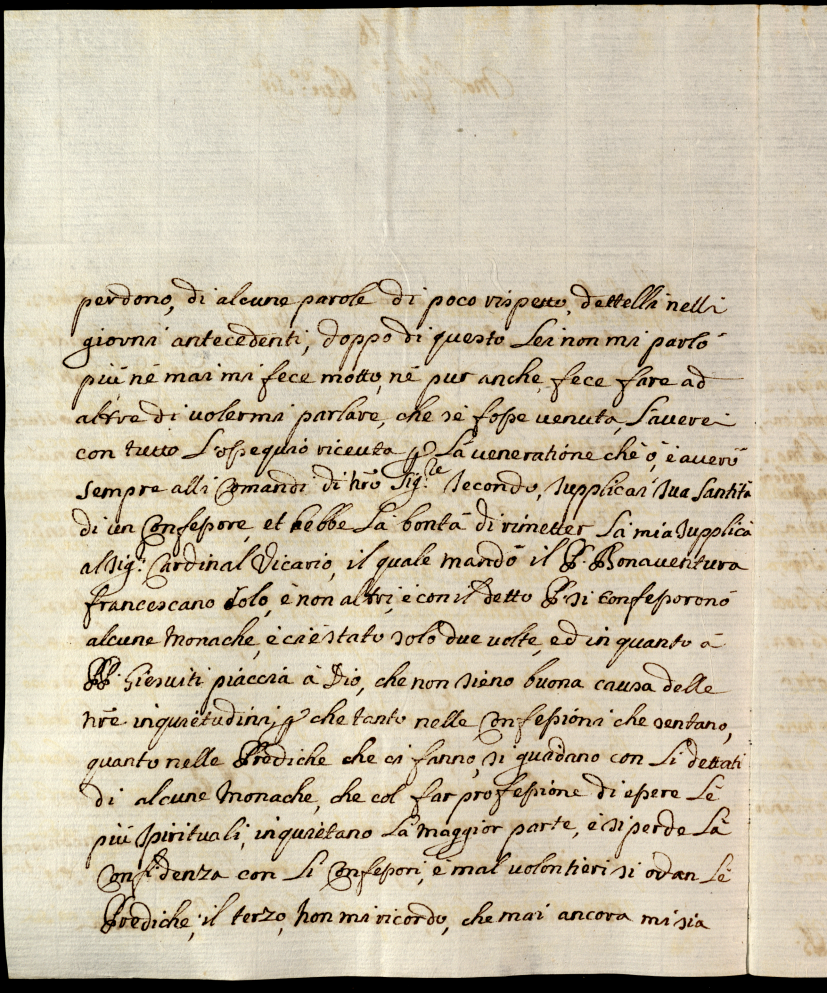 perdono, di alcune parole di poco rispetto, dettelli nelli
giorni antecedenti, doppo di questo Lei non mi parlò
più nè mai mi fece motto, nè pur anche fece fare ad
altre di volermi parlare, che sè fosse venuta, L'averei
con tutto L'ossequio ricevuta p La veneratione chè ò, è averò
sempre alli Comandi di nro Sig.re Secondo, supplicai sua Santità
di un Confessore, et hebbe La bontà di rimetter La mia supplica
al Sig.r Cardinal Vicario, il quale mandò il P. Bonaventura
francescano solo, è non altri, è con il detto P. si confessoronò
alcune Monache, è ci è stato solo due volte, ed in quanto à
PP. Giesuiti piaccia à Dio, che non sieno buona causa delle
nre inquietudini, p che tanto nelle Confessioni che sentano,
quanto nelle Prediche che ci fanno, si guidano con Li dettati
di alcune Monache, che col far professione di essere Lè
più spirituali, inquietano La maggior parte, è si perde La
Confidenza con Li Confessori, è mal volontieri si odan Lè
Prediche; il terzo, non mi ricordo, che mai ancora mi sia